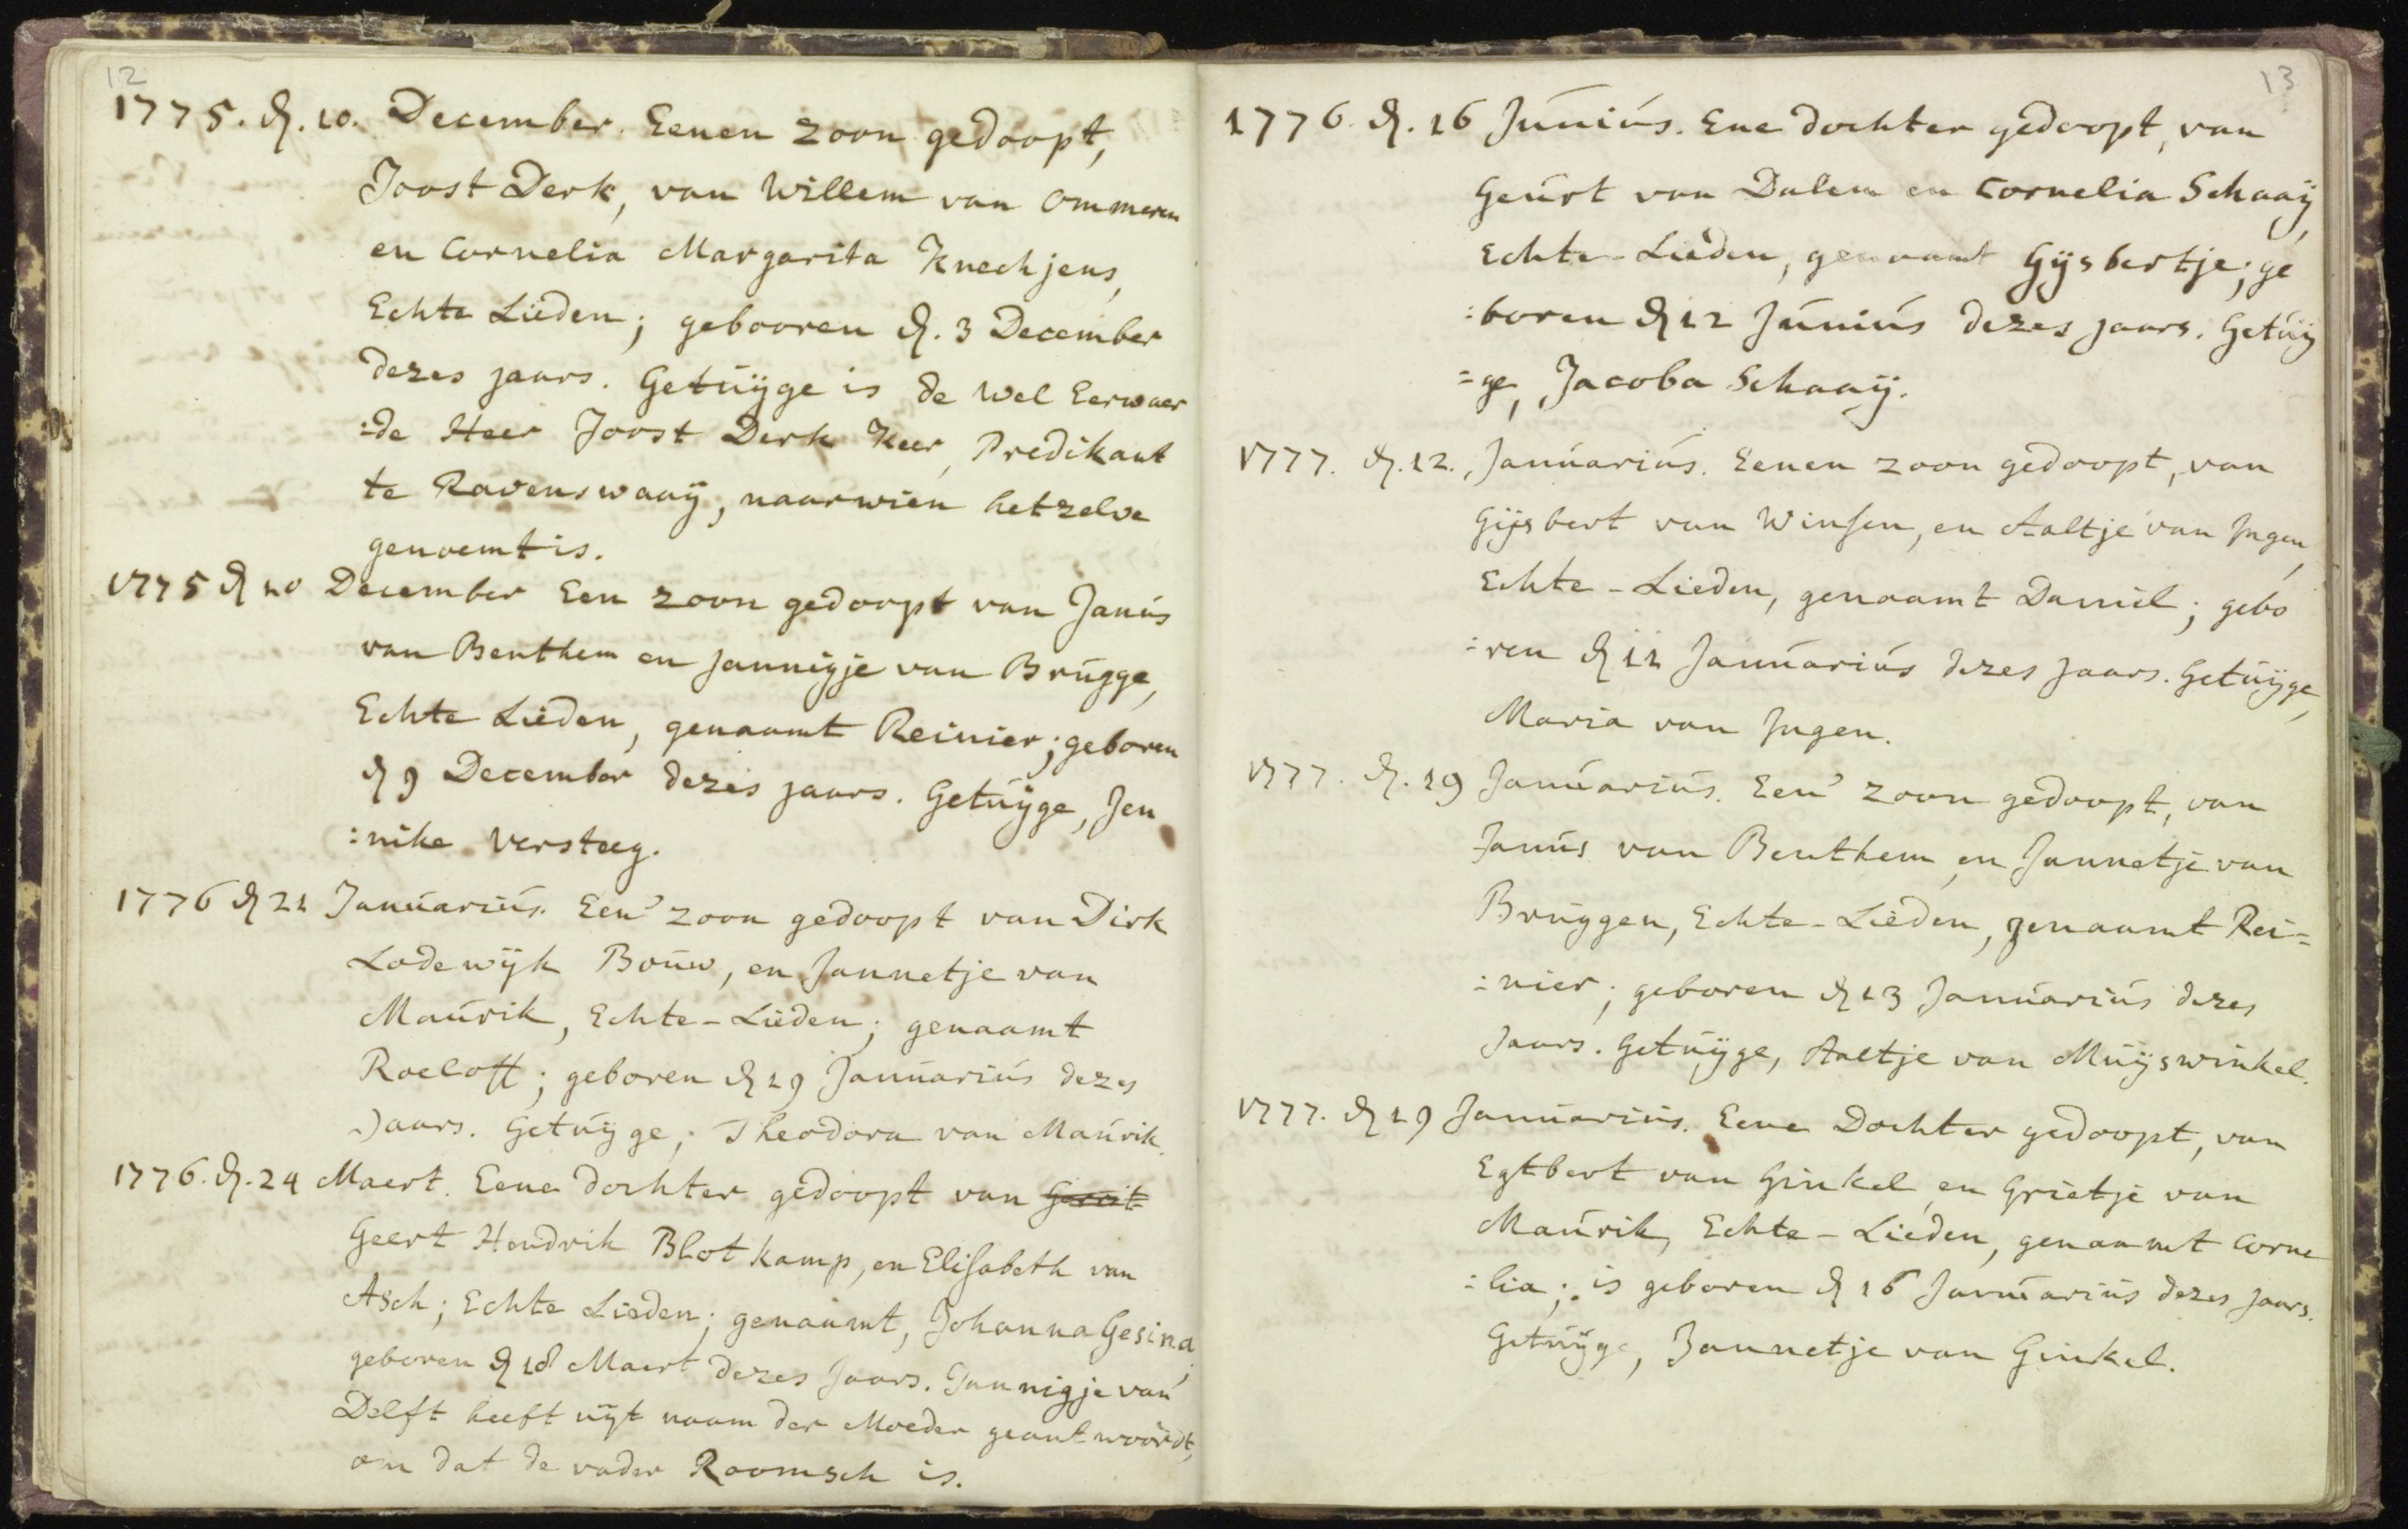 12
1775. d. 10. December. Eenen zoon gedoopt,
Joost Derk, van Willem van Ommeren
en Cornelia Margarita Knechjens,
Echte Lieden; gebooren d. 3 December
dezes jaars. Getuÿge is de Wel Eerwaer
:de Heer Joost Derk Keer, Predikant
te Ravenswaaÿ, naarwien hetzelve
genoemt is.
1775 d 10 December Een zoon gedoopt van Janus
van Benthem en Jannigje van Brugge,
Echte Lieden, genaamt Reinier; geboren
d 9 December dezes jaars. Getuÿge, Jen
:nike Versteeg.
1776 d 21 Januarius. Een' zoon gedoopt van Dirk
Lodewÿk Bouw, en Jannetje van
Maurik, Echte-Lieden; genaamt
Roeloff; geboren d 19 Januarius dezes
Jaars. Getuÿge; Theodora van Maurik.
1776. d. 24 Maert. Eene dochter gedoopt van Gerrit
Geert Hendrik Blotkamp, en Elisabeth van
Asch; Echte Lieden; genaamt, Johanna Gesina,
geboren d 18 Maert dezes Jaars. Jannigje van
Delft heeft uÿt naam der Moeder geantwoordt,
om dat de vader Roomsch is.
13
1776. d. 16 Junius. Ene dochter gedoopt, van
Geurt van Dalem en Cornelia Schaaÿ,
Echte-Lieden, genaamt Gÿsbertje; ge
:boren d 12 Junius dezes jaars. Getuÿ
=ge, Jacoba Schaaÿ.
1777. d. 12. Januarius. Eenen zoon gedoopt, van
Gÿsbert van Winsen, en Aaltje van Ingen,
Echte-Lieden, genaamt Daniel; gebo
:ren d 11 Januarius dezes jaars. Getuÿge,
Maria van Ingen.
1777. d. 19 Januarius. Een' zoon gedoopt, van
Janus van Benthem, en Jannetje van
Bruggen, Echte-Lieden, genaamt Rei=
:nier; geboren d 13 Januarius dezes
Jaars. Getuÿge, Aaltje van Muÿswinkel.
1777. d 19 Januarius. Eene Dochter gedoopt, van
Egtbert van Ginkel, en Grietje van
Maurik, Echte-Lieden, genaamt Corne
:lia; is geboren d 16 Januarius dezes jaars.
Getuÿge, Jannetje van Ginkel.